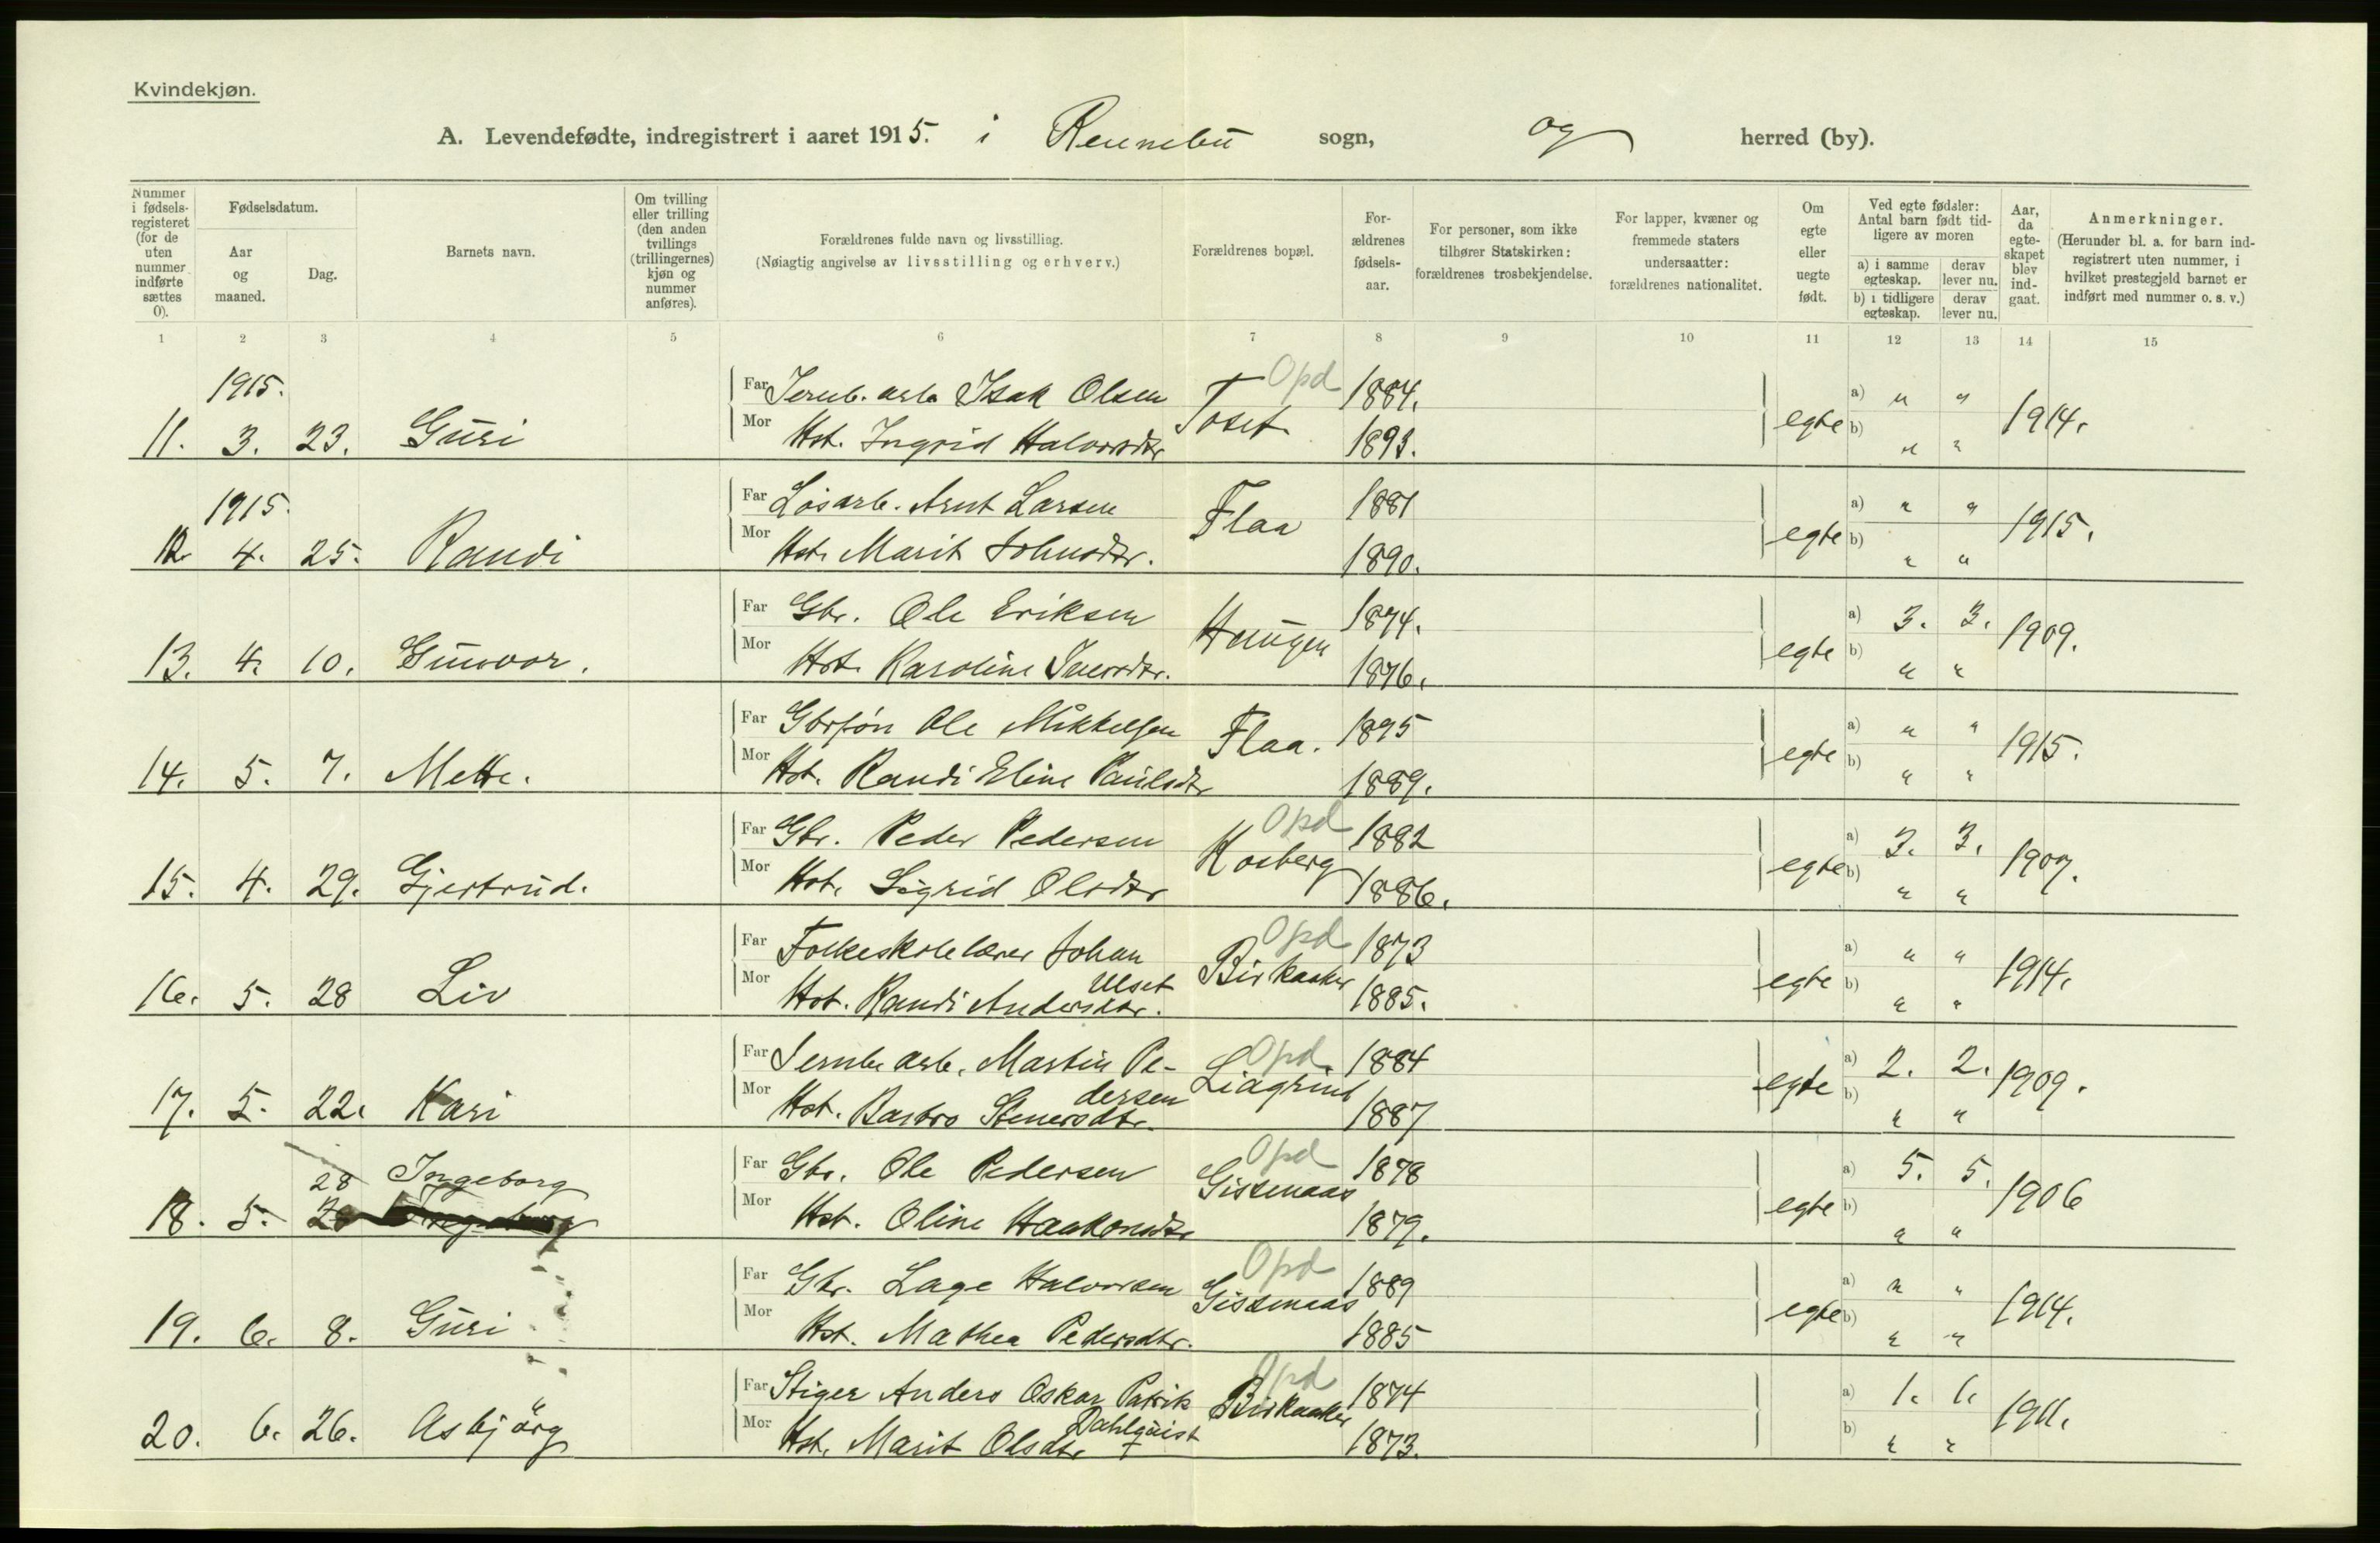 Kvindekjøn.
A. Levendefødte, indregistrert i aaret 1915. i Rennebu sogn, og herred (by).
Nummer i fødsels-registeret (for de uten nummer indførte sættes 0).
Fødselsdatum.
Aar og maaned.
Dag.
Barnets navn.
Om tvilling eller trilling (den anden tvillings (trillingernes) kjøn og nummer anføres).
Forældrenes fulde navn og livsstilling.
(Nøiagtig angivelse av livsstilling og erhverv.)
Forældrenes bopæl.
For-ældrenes fødsels-aar.
For personer, som ikke tilhører Statskirken: forældrenes trosbekjendelse.
For lapper, kvæner og fremmede staters undersaatter: forældrenes nationalitet.
Om egte eller uegte født.
Ved egte fødsler: Antal barn født tid-ligere av moren
a) i samme egteskap. derav lever nu.
b) i tidligere egteskap. derav lever nu.
Aar, da egte-skapet blev ind-gaat.
Anmerkninger.
(Herunder bl. a. for barn ind-registrert uten nummer, i hvilket prestegjeld barnet er indført med nummer o. s. v.)
1 2 3 4 5 6 7 8 9 10 11 12 13 14 15
1915.
Far Jernb. arb. Isak Olsen Opd 1884. a) " "
11. 3. 23. Guri Toset egte 1914.
Mor Hst. Ingrid Halvorsdtr 1893. b) " "
1915.
Far Løsarb. Arnt Larsen 1881 a) " "
12. 4. 25. Randi Flaa egte 1915.
Mor Hst. Marit Johnsdtr. 1890. b) " "
Far Gbr. Ole Eriksen 1874. a) 3. 3.
13. 4. 10. Gunvor. Haugen egte 1909.
Mor Hst. Karoline Iversdtr. 1876. b) " "
Far Gbrsøn Ole Mikkelsen 1895 a) " "
14. 5. 7. Mette. Flaa. egte 1915.
Mor Hst. Randi Eline Paulsdtr 1889. b) " "
Far Gbr. Peder Pedersen Opd 1882 a) 3. 3.
15. 4. 29. Gjertrud. Hosberg egte 1907.
Mor Hst. Sigrid Olsdtr 1886. b) " "
Far Folkeskolelærer Johan Ulset Opd 1873 a) " "
16. 5. 28 Liv Birkaaker egte 1914.
Mor Hst. Randi Andersdtr. 1885. b) " "
Far Jernb. arb. Martin Pedersen Opd. 1884 a) 2. 2.
17. 5. 22. Kari Liagrind egte 1909.
Mor Hst. Barbro Stenersdtr. 1887 b) " "
28 Ingeborg
Far Gbr. Ole Pedersen Opd 1878 a) 5. 5.
18. 5. Gissenaas egte 1906
Mor Hst. Oline Haakonsdtr 1879. b) " "
Far Gbr. Lage Halvorsen Opd 1889 a) " "
19. 6. 8. Guri Gissenaas egte 1914.
Mor Hst. Mathea Pedersdtr. 1885 b) " "
Far Stiger Anders Oskar Patrik Dahlquist Opd 1874 a) 1. 1.
20. 6. 26. Asbjörg Birkaaker 1911.
Mor Hst. Marit Olsdtr 1873. b) " "